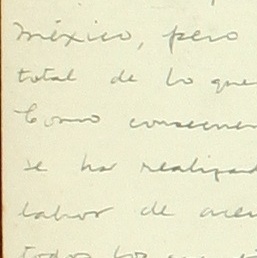 México, pero
total de lo que
Como consecuen
se ha realizad
labor de acer
todos los que